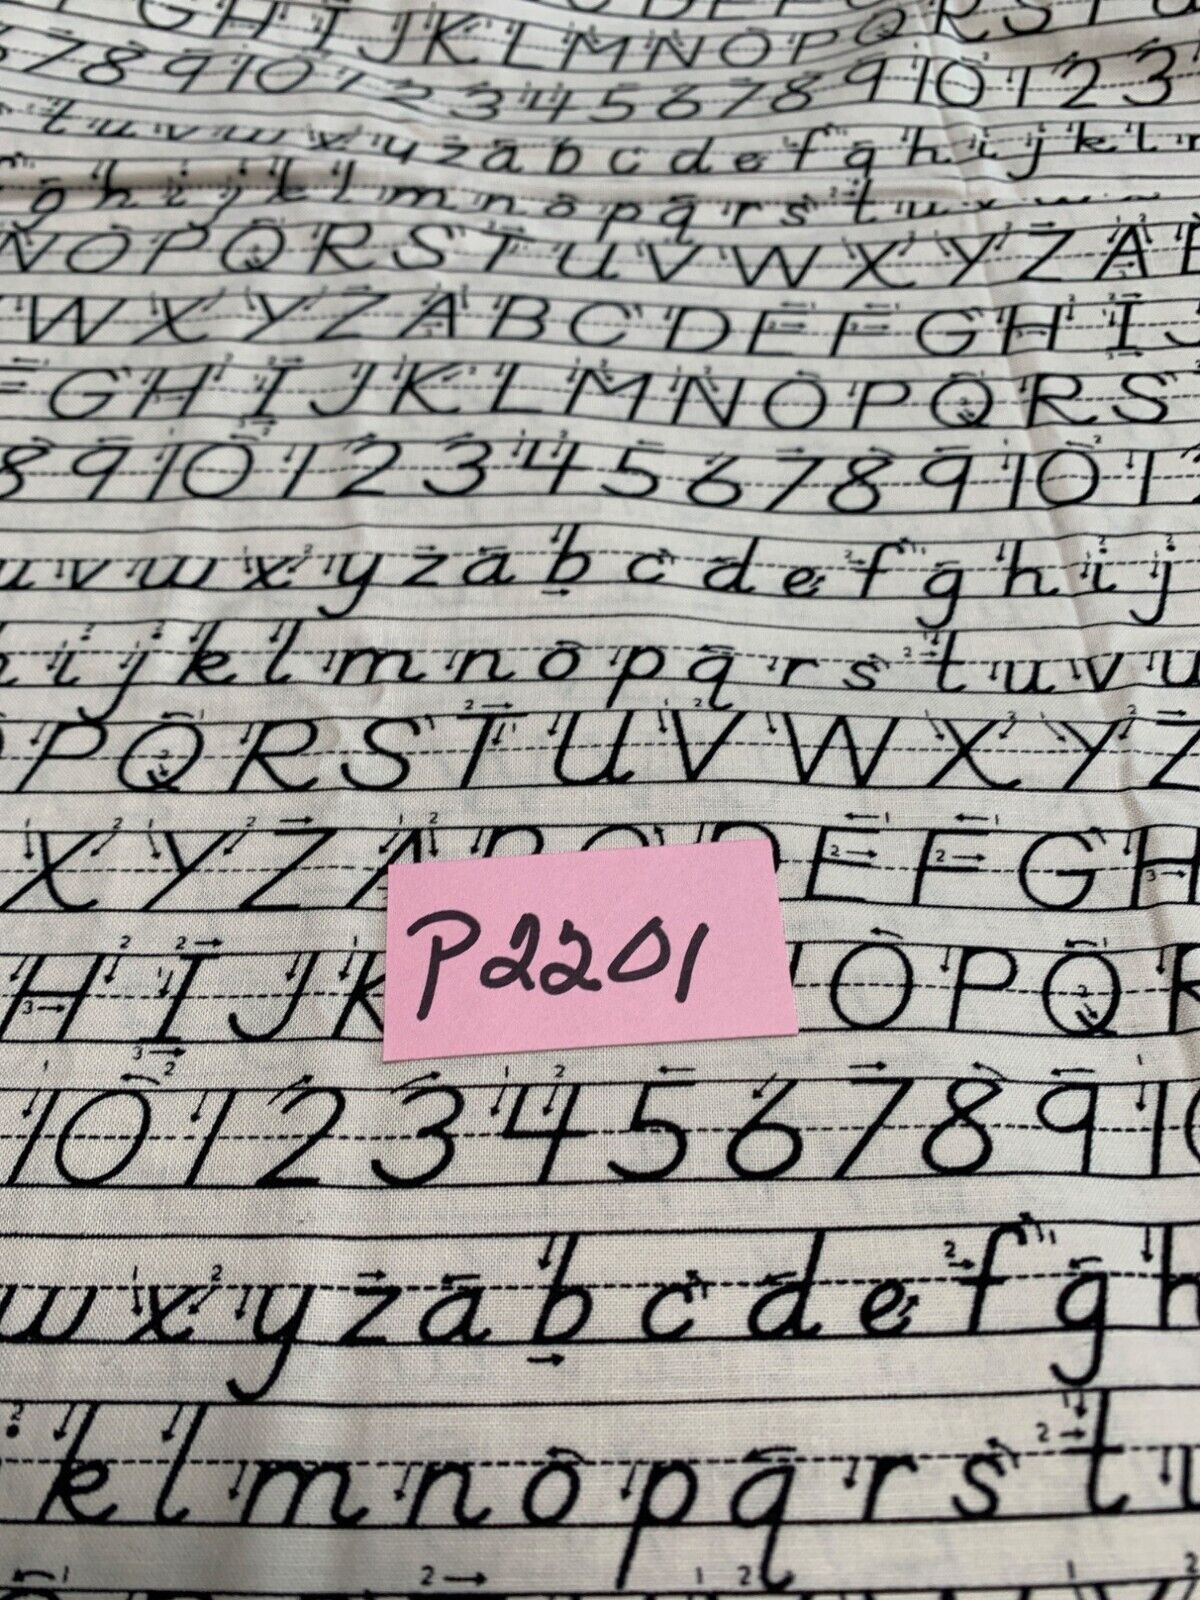 G H I J K L M N O P Q R S T
7 8 9 10 1 2 3 4 5 6 7 8 9 10 1 2 3
t u v w x y z a b c d e f g h i j k l
g h i j k l m n o p q r s t u
N O P Q R S T U V W X Y Z A
W X Y Z A B C D E F G H I J
F G H I J K L M N O P Q R S
8 9 10 1 2 3 4 5 6 7 8 9 10 1 2
u v w x y z a b c d e f g h i j
h i j k l m n o p q r s t u v
P Q R S T U V W X Y Z
X Y Z A B C D E F G H
H I J K O P Q R
P2201
10 1 2 3 4 5 6 7 8 9 10
w x y z a b c d e f g h
k l m n o p q r s t u